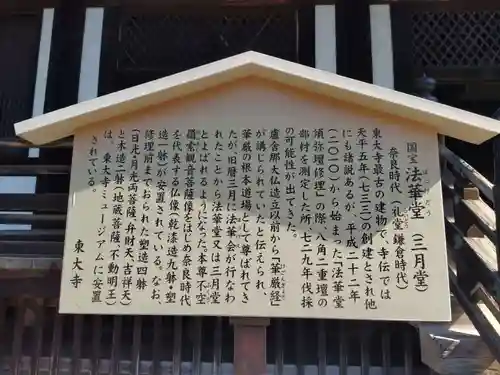 国宝 法華堂（三月堂）
ほっけどう
奈良時代（礼堂 鎌倉時代）
東大寺最古の建物で、寺伝では
天平五年（七三三）の創建とされ他
にも諸説あるが、平成二十二年
（二〇一〇）から始まった「法華堂
須弥壇修理」の際、八角二重壇の
部材を測定した所、七二九年伐採
の可能性が出てきた。
盧舎那大仏造立以前から「華厳経」
が講じられていたと伝えられ、
華厳の根本道場として尊ばれてき
たが、旧暦三月に法華会が行なわ
れたことから、法華堂又は三月堂
とよばれるようになった。本尊・不空
羂索観音菩薩像をはじめ奈良時代
を代表する仏像（乾漆造九躰・塑
造一躰）が安置されている。なお、
修理前までおられた塑造四躰
（日光・月光両菩薩、弁財天、吉祥天）
と木造二躰（地蔵菩薩、不動明王）
は、東大寺ミュージアムに安置
されている。
東大寺